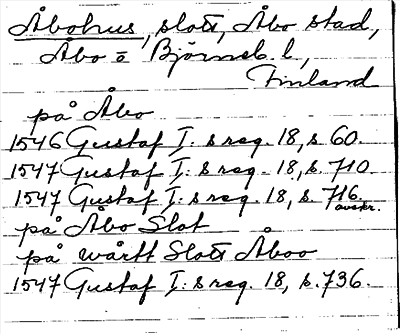 Åbohus, slott, Åbo stad,
Åbo o Björneb. l.,
Finland
på Åbo
1546 Gustaf I: s reg. 18, s. 60.
1547 Gustaf I: s reg. 18, s. 710.
1547 Gustaf I: s reg. 18, s. 716.
avskr.
på Åbo Slot
på wårtt Slott Åboo
1547 Gustaf I: s reg. 18, s. 736.